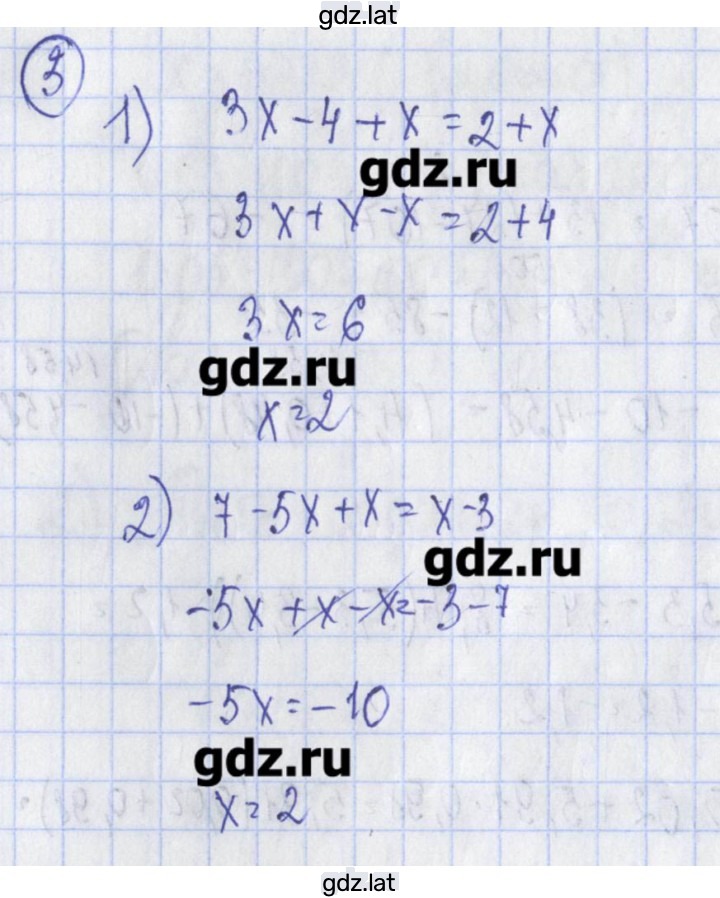 gdz.lat
3
1) 3x-4+x=2+x
gdz.ru
3x+x-x=2+4
3x=6
gdz.ru
x=2
2) 7-5x+x=x-3
gdz.ru
-5x+x-x=-3-7
-5x=-10
gdz.ru
x=2
gdz.lat